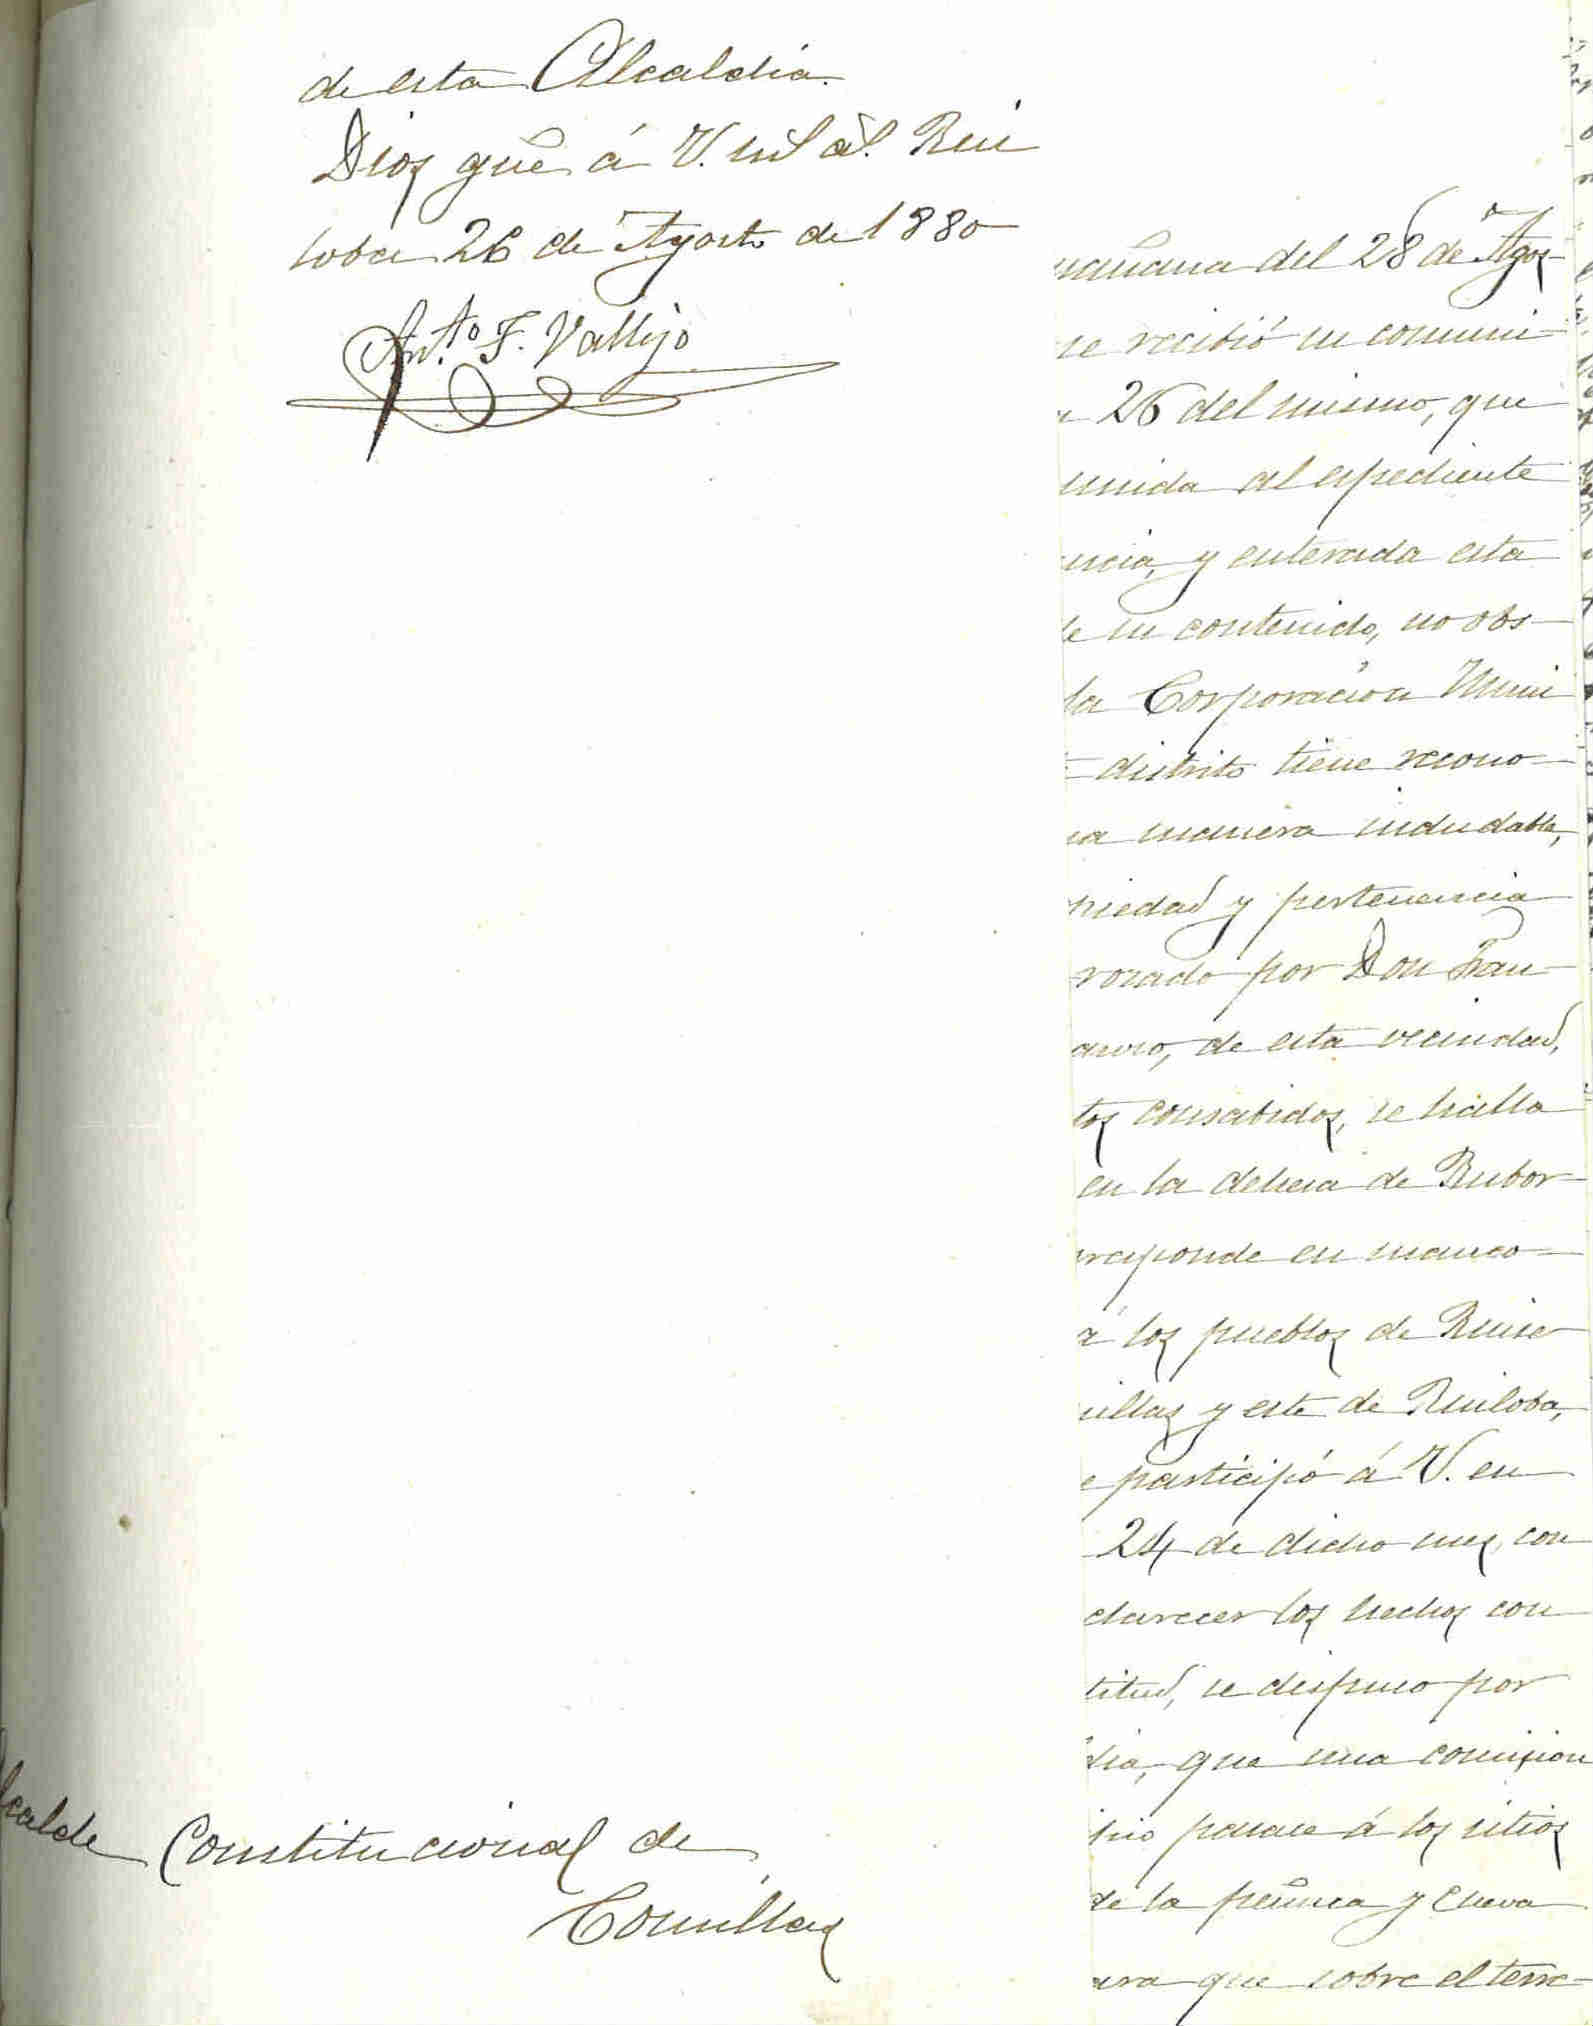 de esta Alcaldia.
Dios gue á V. ml as. Rui
loba 26 de Agosto de 1880
Ant.º F. Vallejo
Alcalde Constitucional de
Comillas
mañana del 28 de Agos-
se recibió su comuni-
26 del mismo, que
unida al espediente
encia, y enterada esta
de su contenido, no obs-
la Corporacion Muni
distrito tiene recono-
manera indudable,
piedad y pertenencia
rozado por Don Fran-
de esta vecindad,
tos consabidos, se halla
en la dehesa de Rubor-
rresponde en manco-
á los pueblos de Ruise
millas y este de Ruiloba,
participó á V. en
24 de dicho mes, con
clarecer los hechos con
titud, se dispuso por
dia, que una comision
pasase á los sitios
de la peñuca y Cueva
que sobre el terre-